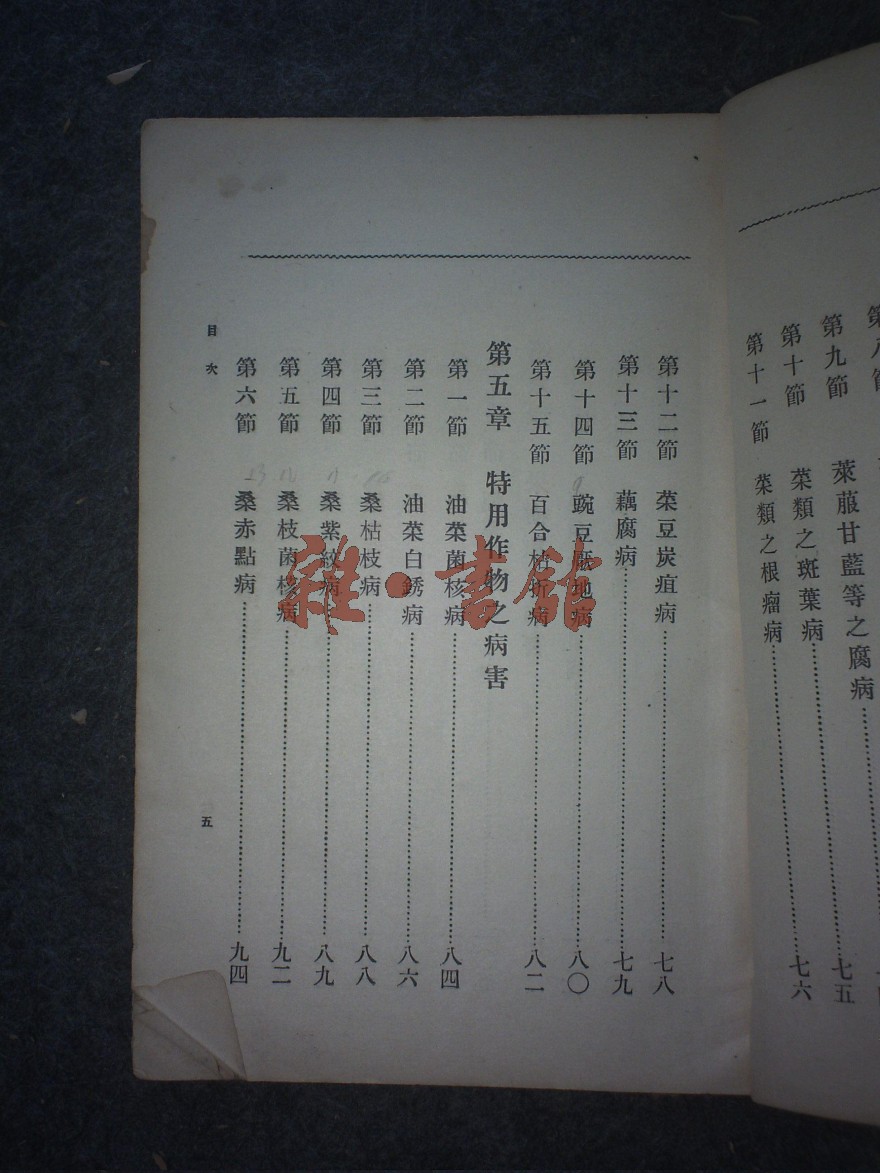 第九節 萊菔甘藍等之腐病 七五
第十節 菜類之斑葉病 七六
第十一節 菜類之根瘤病
第十二節 菜豆炭疽病 七八
第十三節 藕腐病 七九
第十四節 豌豆厭地病 八〇
第十五節 百合枯折病 八二
第五章 特用作物之病害
第一節 油菜菌核病 八四
第二節 油菜白銹病 八六
第三節 桑枯枝病 八八
第四節 桑紫紋病 八九
第五節 桑枝菌核病 九二
第六節 桑赤點病 九四
目次
五
雜·書館